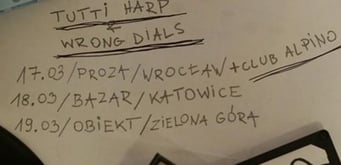 TUTTI HARP
+
WRONG DIALS
17.03/PROZA/WROCŁAW + CLUB ALPINO
18.03/BAZAR/KATOWICE
19.03/OBIEKT/ZIELONA GÓRA